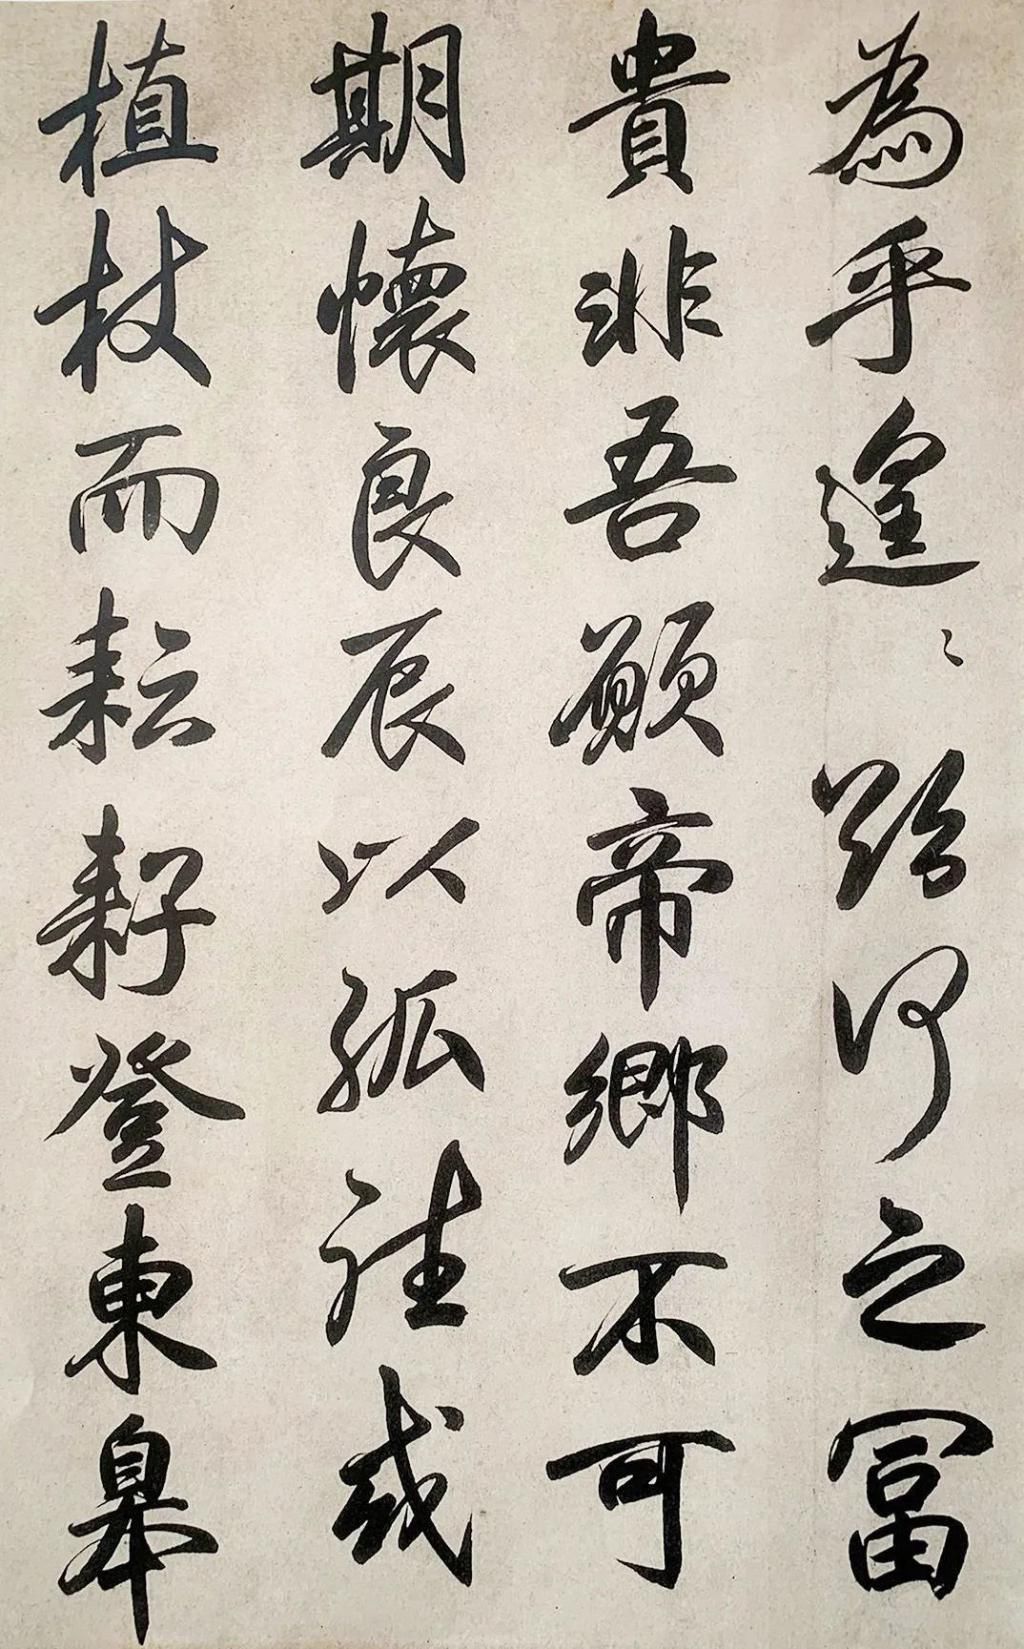 為乎遑〻欲何之富
貴非吾願帝鄉不可
期懷良辰以孤往或
植杖而耘耔登東臯